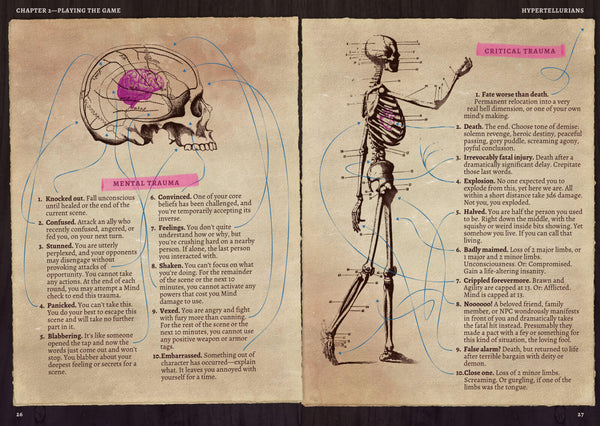 CHAPTER 2—PLAYING THE GAME
MENTAL TRAUMA
1. Knocked out. Fall unconscious
until healed or the end of the
current scene.
2. Confused. Attack an ally who
recently confused, angered, or
fed you, on your next turn.
3. Stunned. You are utterly
perplexed, and your opponents
may disengage without
provoking attacks of
opportunity. You cannot take
any actions. At the end of each
round, you may attempt a Mind
check to end this trauma.
4. Panicked. You can't take this.
You do your best to escape this
scene and will take no further
part in it.
5. Blabbering. It's like someone
opened the tap and now the
words just come out and won't
stop. You blabber about your
deepest feeling or secrets for a
scene.
6. Convinced. One of your core
beliefs has been challenged, and
you're temporarily accepting its
inverse.
7. Feelings. You don't quite
understand how or why, but
you're crushing hard on a nearby
person. If alone, the last person
you interacted with.
8. Shaken. You can't focus on what
you're doing. For the remainder
of the scene or the next 10
minutes, you cannot activate any
powers that cost you Mind
damage to use.
9. Vexed. You are angry and fight
with fury more than cunning.
For the rest of the scene or the
next 10 minutes, you cannot use
any positive weapon or armor
tags.
10. Embarrassed. Something out of
character has occurred—explain
what. It leaves you annoyed with
yourself for a time.
26
HYPERTELLURIANS
CRITICAL TRAUMA
1. Fate worse than death.
Permanent relocation into a very
real hell dimension, or one of your own
mind's making.
2. Death. The end. Choose tone of demise:
solemn revenge, heroic destiny, peaceful
passing, gory puddle, screaming agony,
joyful conclusion.
3. Irrevocably fatal injury. Death after a
dramatically significant delay. Crepitate
those last words.
4. Explosion. No one expected you to
explode from this, yet here we are. All
within a short distance take 3d6 damage.
Not you, you exploded.
5. Halved. You are half the person you used
to be. Right down the middle, with the
squishy or weird inside bits showing. Yet
somehow you live. If you can call that
living.
6. Badly maimed. Loss of 2 major limbs, or
1 major and 2 minor limbs.
Unconsciousness. Or: Compromised.
Gain a life-altering insanity.
7. Crippled forevermore. Brawn and
Agility are capped at 13. Or: Afflicted.
Mind is capped at 13.
8. Nooooo! A beloved friend, family
member, or NPC wondrously manifests
in front of you and dramatically takes
the fatal hit instead. Presumably they
made a pact with a fey or something for
this kind of situation, the loving fool.
9. False alarm? Death, but returned to life
after terrible bargain with deity or
demon.
10. Close one. Loss of 2 minor limbs.
Screaming. Or gurgling, if one of the
limbs was the tongue.
27